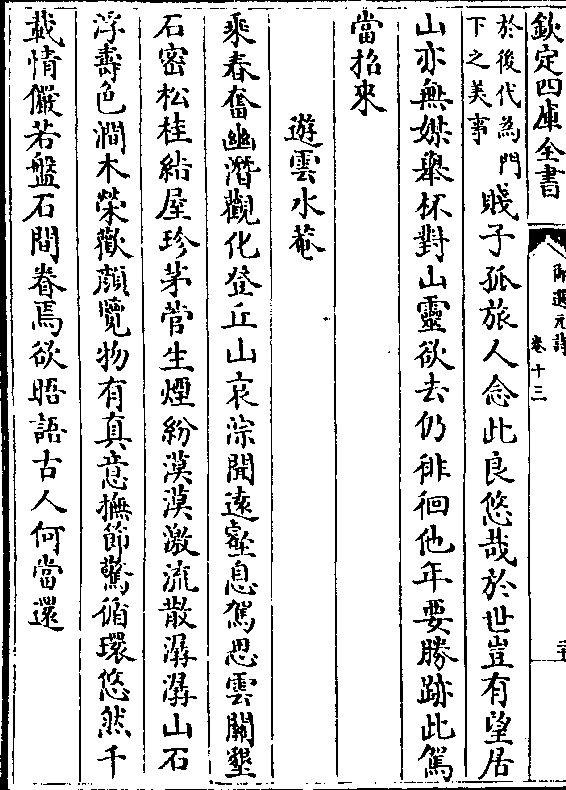 欽定四庫全書
御選元詩
卷十三
於後代為門
下之美事
賤子孤旅人念此良悠哉於世豈有望居
山亦無媒舉杯對山靈欲去仍徘徊他年要勝跡此駕
當招來
遊雲水菴
乘春奮幽潛觀化登丘山哀淙聞遠壑息駕思雲關墾
石密松桂結屋珍茅菅生煙紛漠漠激流散潺潺山石
浮壽色澗木榮歡顔覽物有真意撫節驚循環悠然千
載情儼若盤石間眷焉欲晤語古人何當還